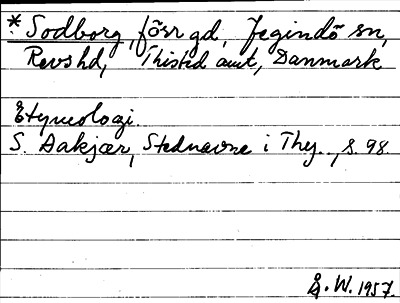 * Sodborg, försv gd, Jegindö sn,
Revs hd, Thisted amt, Danmark
Etymologi.
S. Aakjær, Stednavne i Thy., s. 98.
Å. W. 1957.